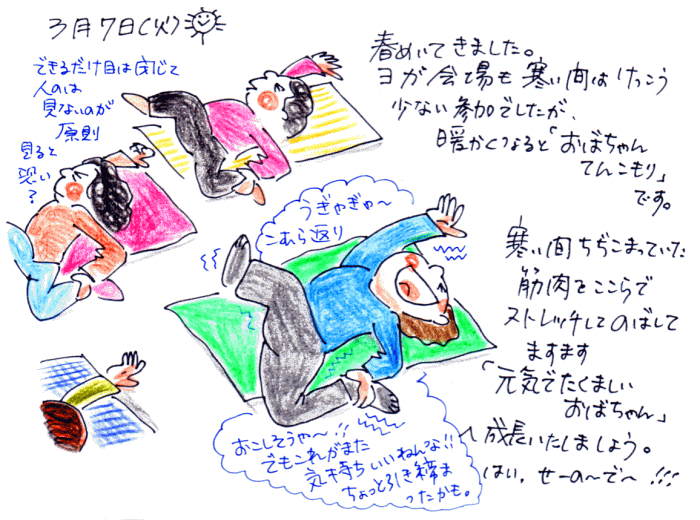 3月7日(火)
できるだけ目は閉じて
人のは
見ないのが
原則
見ると
恐い
?
春めいてきました。
ヨガ会場も寒い間はけっこう
少ない参加でしたが、
暖かくなると「おばちゃん
てんこもり」
です。
うぎゃぎゃ〜
こむら返り
寒い間ちぢこまっていた
筋肉をここらで
ストレッチしてのばして
ますます
「元気でたくましい
おばちゃん」
へ成長いたしましょう。
はい、せーの〜で〜!!!
おこしそうや〜!!
でもこれがまた
気持ちいいねんな!!
ちょっと引き締ま
ったかも。